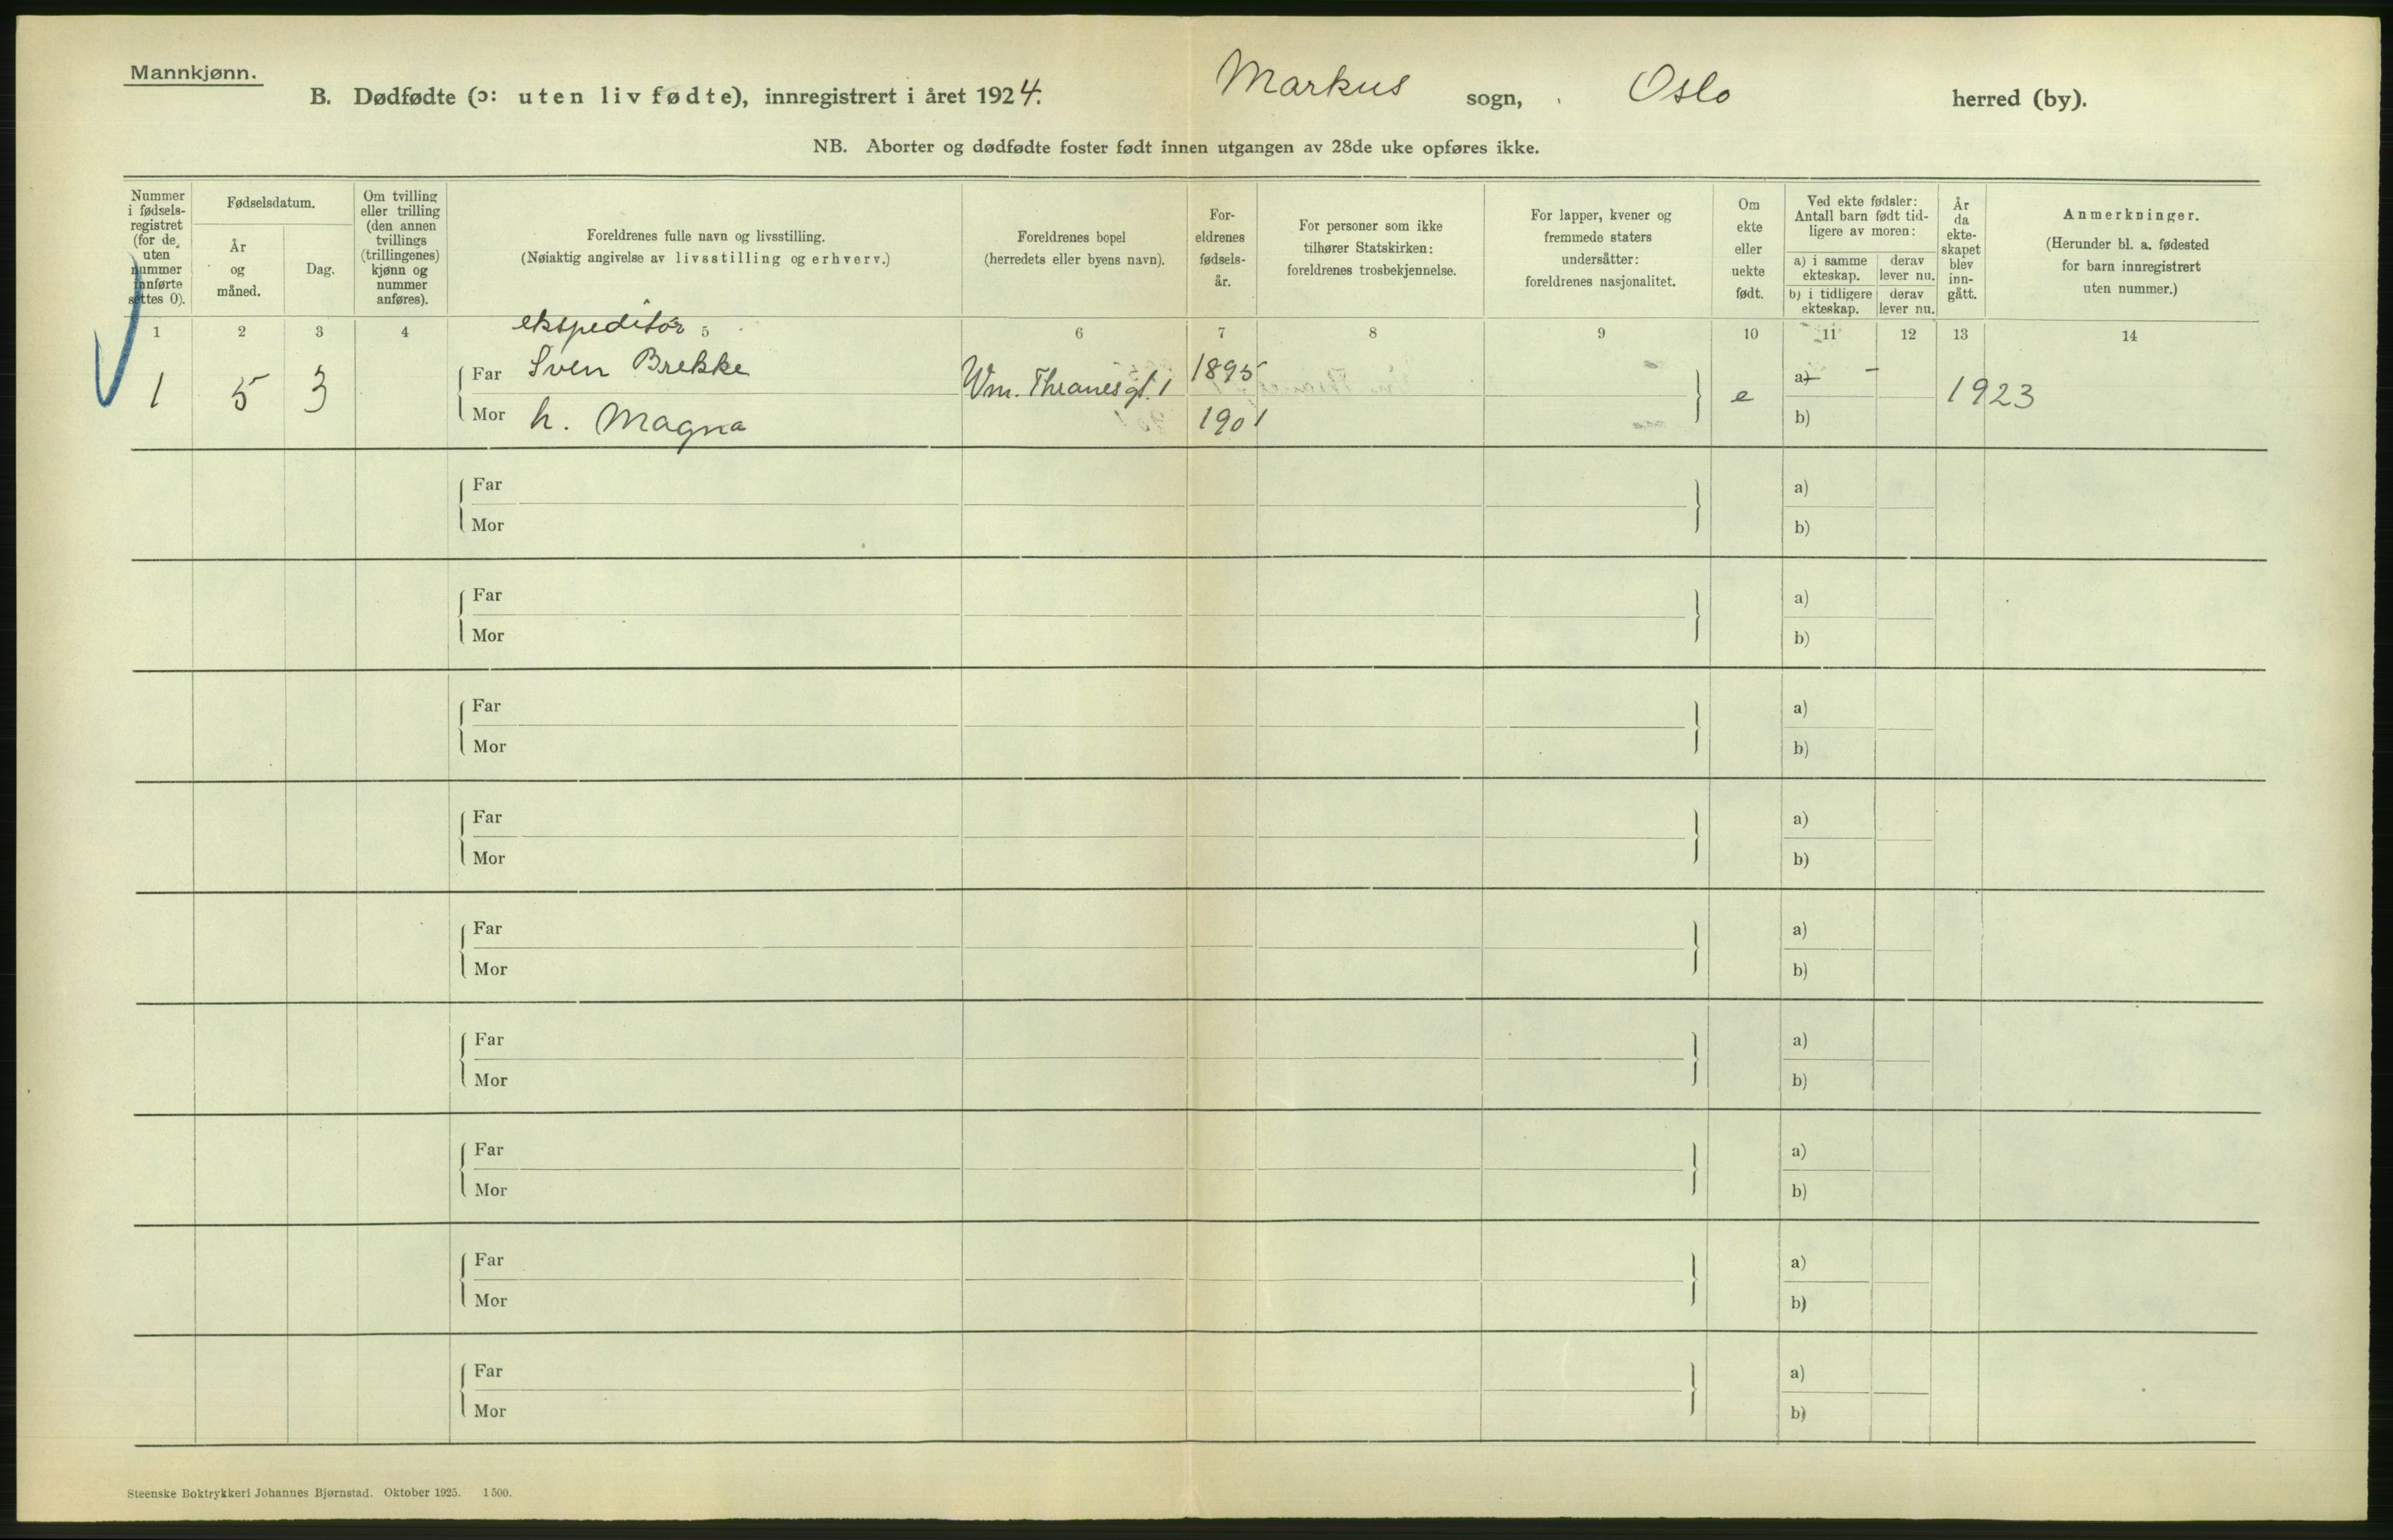 Mannkjønn.
B. Dødfødte (ɔ: uten liv fødte), innregistrert i året 1924. Markus sogn, Oslo herred (by).
NB. Aborter og dødfødte foster født innen utgangen av 28de uke opføres ikke.
Nummer
i fødsels-
registret
(for de
uten
nummer
innførte
settes 0).
Fødselsdatum.
År
og
måned.
Dag.
Om tvilling
eller trilling
(den annen
tvillings
(trillingenes)
kjønn og
nummer
anføres).
Foreldrenes fulle navn og livsstilling.
(Nøiaktig angivelse av livsstilling og erhverv.)
Foreldrenes bopel
(herredets eller byens navn).
For-
eldrenes
fødsels-
år.
For personer som ikke
tilhører Statskirken:
foreldrenes trosbekjennelse.
For lapper, kvener og
fremmede staters
undersåtter:
foreldrenes nasjonalitet.
Om
ekte
eller
uekte
født.
Ved ekte fødsler:
Antall barn født tid-
ligere av moren:
a) i samme
ekteskap.
derav
lever nu.
b) i tidligere
ekteskap.
derav
lever nu.
År
da
ekte-
skapet
blev
inn-
gått.
Anmerkninger.
(Herunder bl. a. fødested
for barn innregistrert
uten nummer.)
1 2 3 4 5 6 7 8 9 10 11 12 13 14
ekspeditør
1 5 3 Far Sven Brekke Wm. Thranesgt. 1 1895 e a) - 1923
Mor h. Magna 1901 b)
Far a)
Mor b)
Far a)
Mor b)
Far a)
Mor b)
Far a)
Mor b)
Far a)
Mor b)
Far a)
Mor b)
Far a)
Mor b)
Far a)
Mor b)
Far a)
Mor b)
Steenske Boktrykkeri Johannes Bjørnstad. Oktober 1925. 1500.